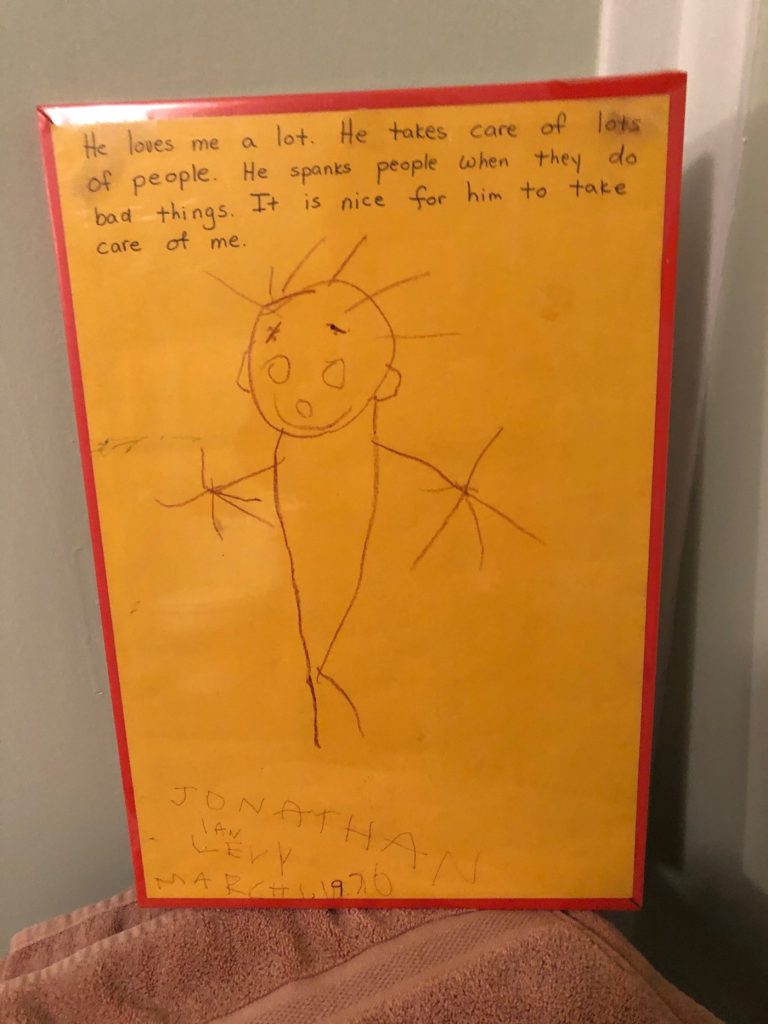 He loves me a lot. He takes care of lots
of people. He spanks people when they do
bad things. It is nice for him to take
care of me.
JONATHAN
IAN
LEVY
MARCH 1, 1970